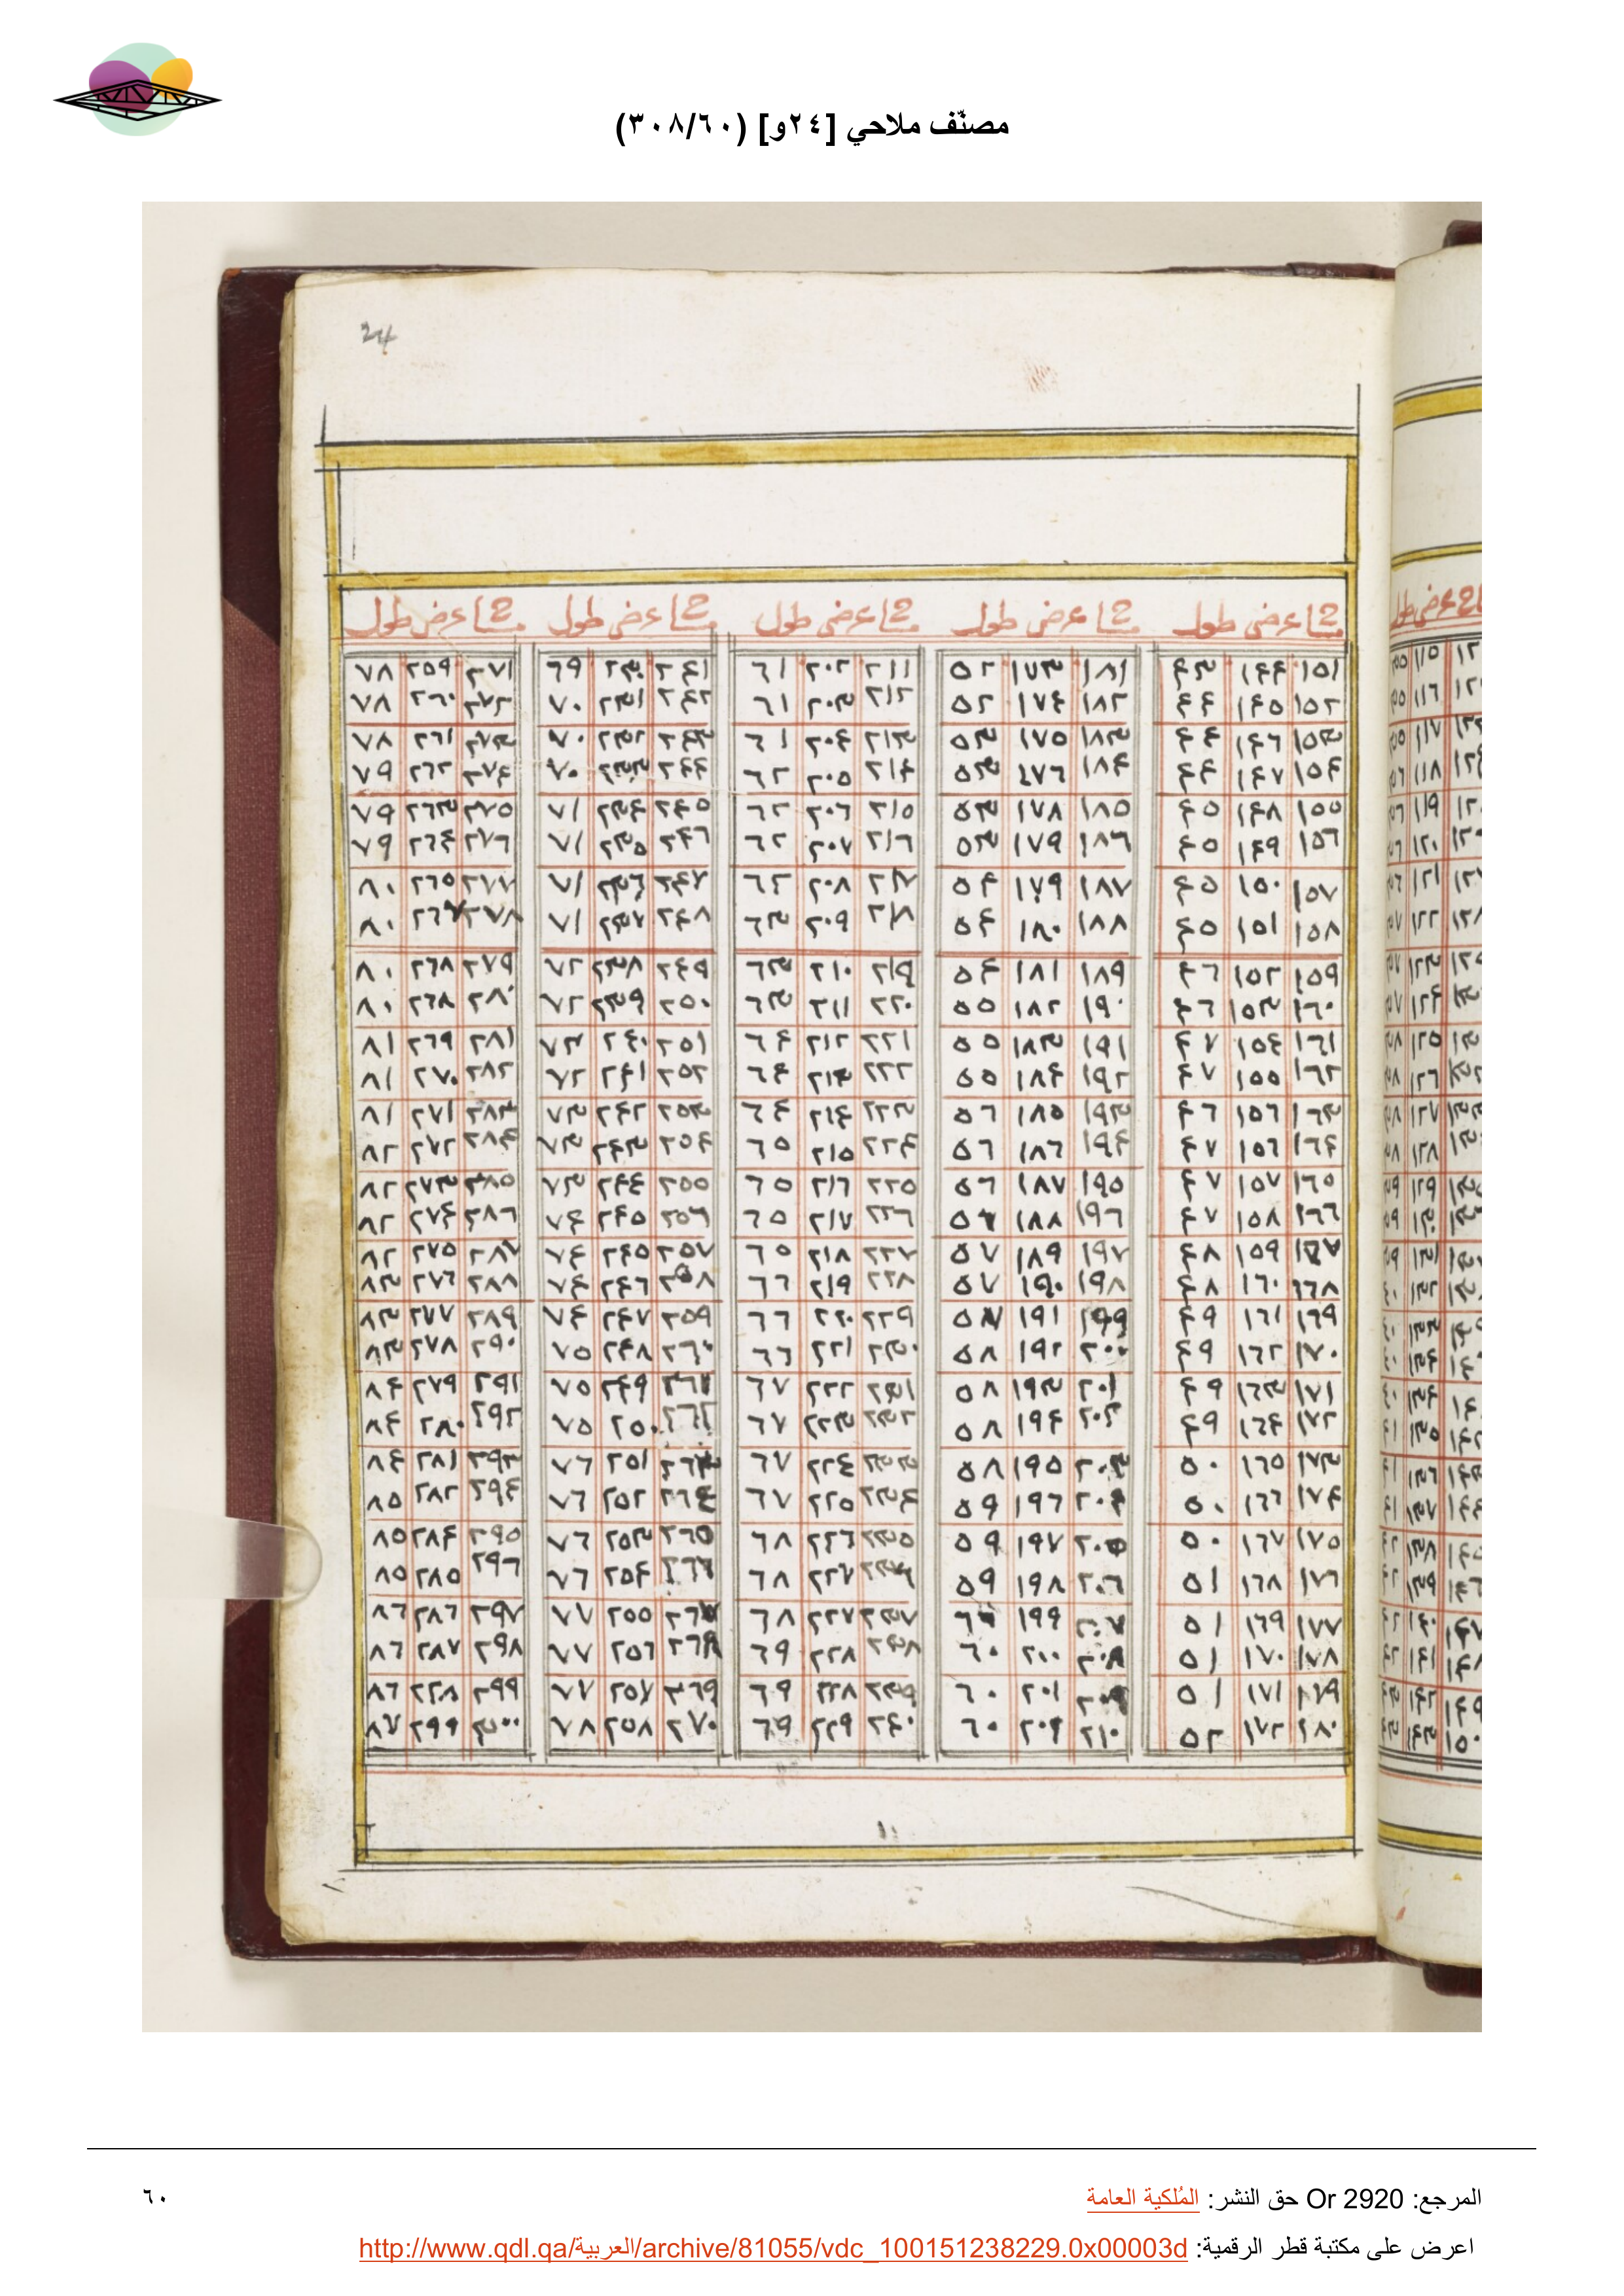 مصنّف ملاحي [٢٤و] (٣٠٨/٦٠)
24
مشا عرض طول مشا عرض طول مشا عرض طول مشا عرض طول مشا عرض طول
١٥١ ١٤٤ ٤٣ ١٨١ ١٧٣ ٥٢ ٢١١ ٢٠٢ ٦١ ٢٤١ ٢٣٠ ٦٩ ٢٧١ ٢٥٩ ٧٨
١٥٢ ١٤٥ ٤٤ ١٨٢ ١٧٤ ٥٢ ٢١٢ ٢٠٣ ٦١ ٢٤٢ ٢٣١ ٧٠ ٢٧٢ ٢٦٠ ٧٨
١٥٣ ١٤٦ ٤٤ ١٨٣ ١٧٥ ٥٣ ٢١٣ ٢٠٤ ٦١ ٢٤٣ ٢٣٢ ٧٠ ٢٧٣ ٢٦١ ٧٨
١٥٤ ١٤٧ ٤٤ ١٨٤ ١٧٦ ٥٣ ٢١٤ ٢٠٥ ٦٢ ٢٤٤ ٢٣٣ ٧٠ ٢٧٤ ٢٦٢ ٧٩
١٥٥ ١٤٨ ٤٥ ١٨٥ ١٧٨ ٥٣ ٢١٥ ٢٠٦ ٦٢ ٢٤٥ ٢٣٤ ٧١ ٢٧٥ ٢٦٣ ٧٩
١٥٦ ١٤٩ ٤٥ ١٨٦ ١٧٩ ٥٣ ٢١٦ ٢٠٧ ٦٢ ٢٤٦ ٢٣٥ ٧١ ٢٧٦ ٢٦٤ ٧٩
١٥٧ ١٥٠ ٤٥ ١٨٧ ١٧٩ ٥٤ ٢١٧ ٢٠٨ ٦٢ ٢٤٧ ٢٣٦ ٧١ ٢٧٧ ٢٦٥ ٨٠
١٥٨ ١٥١ ٤٥ ١٨٨ ١٨٠ ٥٤ ٢١٨ ٢٠٩ ٦٣ ٢٤٨ ٢٣٧ ٧١ ٢٧٨ ٢٦٧ ٨٠
١٥٩ ١٥٢ ٤٦ ١٨٩ ١٨١ ٥٤ ٢١٩ ٢١٠ ٦٣ ٢٤٩ ٢٣٨ ٧٢ ٢٧٩ ٢٦٨ ٨٠
١٦٠ ١٥٣ ٤٦ ١٩٠ ١٨٢ ٥٥ ٢٢٠ ٢١١ ٦٣ ٢٥٠ ٢٣٩ ٧٢ ٢٨٠ ٢٦٨ ٨٠
١٦١ ١٥٤ ٤٧ ١٩١ ١٨٣ ٥٥ ٢٢١ ٢١٢ ٦٤ ٢٥١ ٢٤٠ ٧٣ ٢٨١ ٢٦٩ ٨١
١٦٢ ١٥٥ ٤٧ ١٩٢ ١٨٤ ٥٥ ٢٢٢ ٢١٣ ٦٤ ٢٥٢ ٢٤١ ٧٢ ٢٨٢ ٢٧٠ ٨١
١٦٣ ١٥٦ ٤٦ ١٩٣ ١٨٥ ٥٦ ٢٢٣ ٢١٤ ٦٤ ٢٥٣ ٢٤٢ ٧٣ ٢٨٣ ٢٧١ ٨١
١٦٤ ١٥٦ ٤٧ ١٩٤ ١٨٦ ٥٦ ٢٢٤ ٢١٥ ٦٥ ٢٥٤ ٢٤٣ ٧٣ ٢٨٤ ٢٧٢ ٨٢
١٦٥ ١٥٧ ٤٧ ١٩٥ ١٨٧ ٥٦ ٢٢٥ ٢١٦ ٦٥ ٢٥٥ ٢٤٤ ٧٣ ٢٨٥ ٢٧٣ ٨٢
١٦٦ ١٥٨ ٤٧ ١٩٦ ١٨٨ ٥٦ ٢٢٦ ٢١٧ ٦٥ ٢٥٦ ٢٤٥ ٧٤ ٢٨٦ ٢٧٤ ٨٢
١٦٧ ١٥٩ ٤٨ ١٩٧ ١٨٩ ٥٧ ٢٢٧ ٢١٨ ٦٥ ٢٥٧ ٢٤٥ ٧٤ ٢٨٧ ٢٧٥ ٨٢
١٦٨ ١٦٠ ٤٨ ١٩٨ ١٩٠ ٥٧ ٢٢٨ ٢١٩ ٦٦ ٢٥٨ ٢٤٦ ٧٤ ٢٨٨ ٢٧٦ ٨٣
١٦٩ ١٦١ ٤٩ ١٩٩ ١٩١ ٥٧ ٢٢٩ ٢٢٠ ٦٦ ٢٥٩ ٢٤٧ ٧٤ ٢٨٩ ٢٧٧ ٨٣
١٧٠ ١٦٢ ٤٩ ٢٠٠ ١٩٢ ٥٨ ٢٣٠ ٢٢١ ٦٦ ٢٦٠ ٢٤٨ ٧٥ ٢٩٠ ٢٧٨ ٨٣
١٧١ ١٦٣ ٤٩ ٢٠١ ١٩٣ ٥٨ ٢٣١ ٢٢٢ ٦٧ ٢٦١ ٢٤٩ ٧٥ ٢٩١ ٢٧٩ ٨٤
١٧٢ ١٦٤ ٤٩ ٢٠٢ ١٩٤ ٥٨ ٢٣٢ ٢٢٣ ٦٧ ٢٦٢ ٢٥٠ ٧٥ ٢٩٢ ٢٨٠ ٨٤
١٧٣ ١٦٥ ٥٠ ٢٠٣ ١٩٥ ٥٨ ٢٣٣ ٢٢٤ ٦٧ ٢٦٣ ٢٥١ ٧٦ ٢٩٣ ٢٨١ ٨٤
١٧٤ ١٦٦ ٥٠ ٢٠٤ ١٩٦ ٥٩ ٢٣٤ ٢٢٥ ٦٧ ٢٦٤ ٢٥٢ ٧٦ ٢٩٤ ٢٨٢ ٨٥
١٧٥ ١٦٧ ٥٠ ٢٠٥ ١٩٧ ٥٩ ٢٣٥ ٢٢٦ ٦٨ ٢٦٥ ٢٥٣ ٧٦ ٢٩٥ ٢٨٤ ٨٥
١٧٦ ١٦٨ ٥١ ٢٠٦ ١٩٨ ٥٩ ٢٣٦ ٢٢٧ ٦٨ ٢٦٦ ٢٥٤ ٧٦ ٢٩٦ ٢٨٥ ٨٥
١٧٧ ١٦٩ ٥١ ٢٠٧ ١٩٩ ٦٠ ٢٣٧ ٢٢٧ ٦٨ ٢٦٧ ٢٥٥ ٧٧ ٢٩٧ ٢٨٦ ٨٦
١٧٨ ١٧٠ ٥١ ٢٠٨ ٢٠٠ ٦٠ ٢٣٨ ٢٢٨ ٦٩ ٢٦٨ ٢٥٦ ٧٧ ٢٩٨ ٢٨٧ ٨٦
١٧٩ ١٧١ ٥١ ٢٠٩ ٢٠١ ٦٠ ٢٣٩ ٢٢٨ ٦٩ ٢٦٩ ٢٥٧ ٧٧ ٢٩٩ ٢٢٨ ٨٦
١٨٠ ١٧٢ ٥٢ ٢١٠ ٢٠٢ ٦٠ ٢٤٠ ٢٢٩ ٦٩ ٢٧٠ ٢٥٨ ٧٨ ٣٠٠ ٢٩٩ ٨٧
المرجع: Or 2920 حق النشر: المُلكية العامة
٦٠
اعرض على مكتبة قطر الرقمية: http://www.qdl.qa/العربية/archive/81055/vdc_100151238229.0x00003d